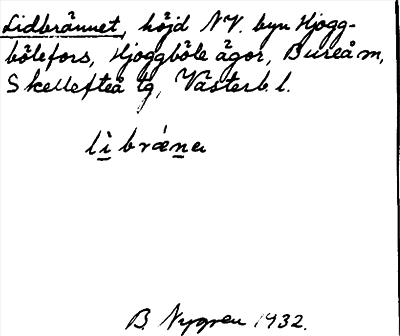 Lidbrännet, höjd NV. byn Hjogg-
bölefors, Hjoggböle ägor, Bureå m,
Skellefteå tg, Västerb. l.
lìbrǽna
B. Nygren 1932.